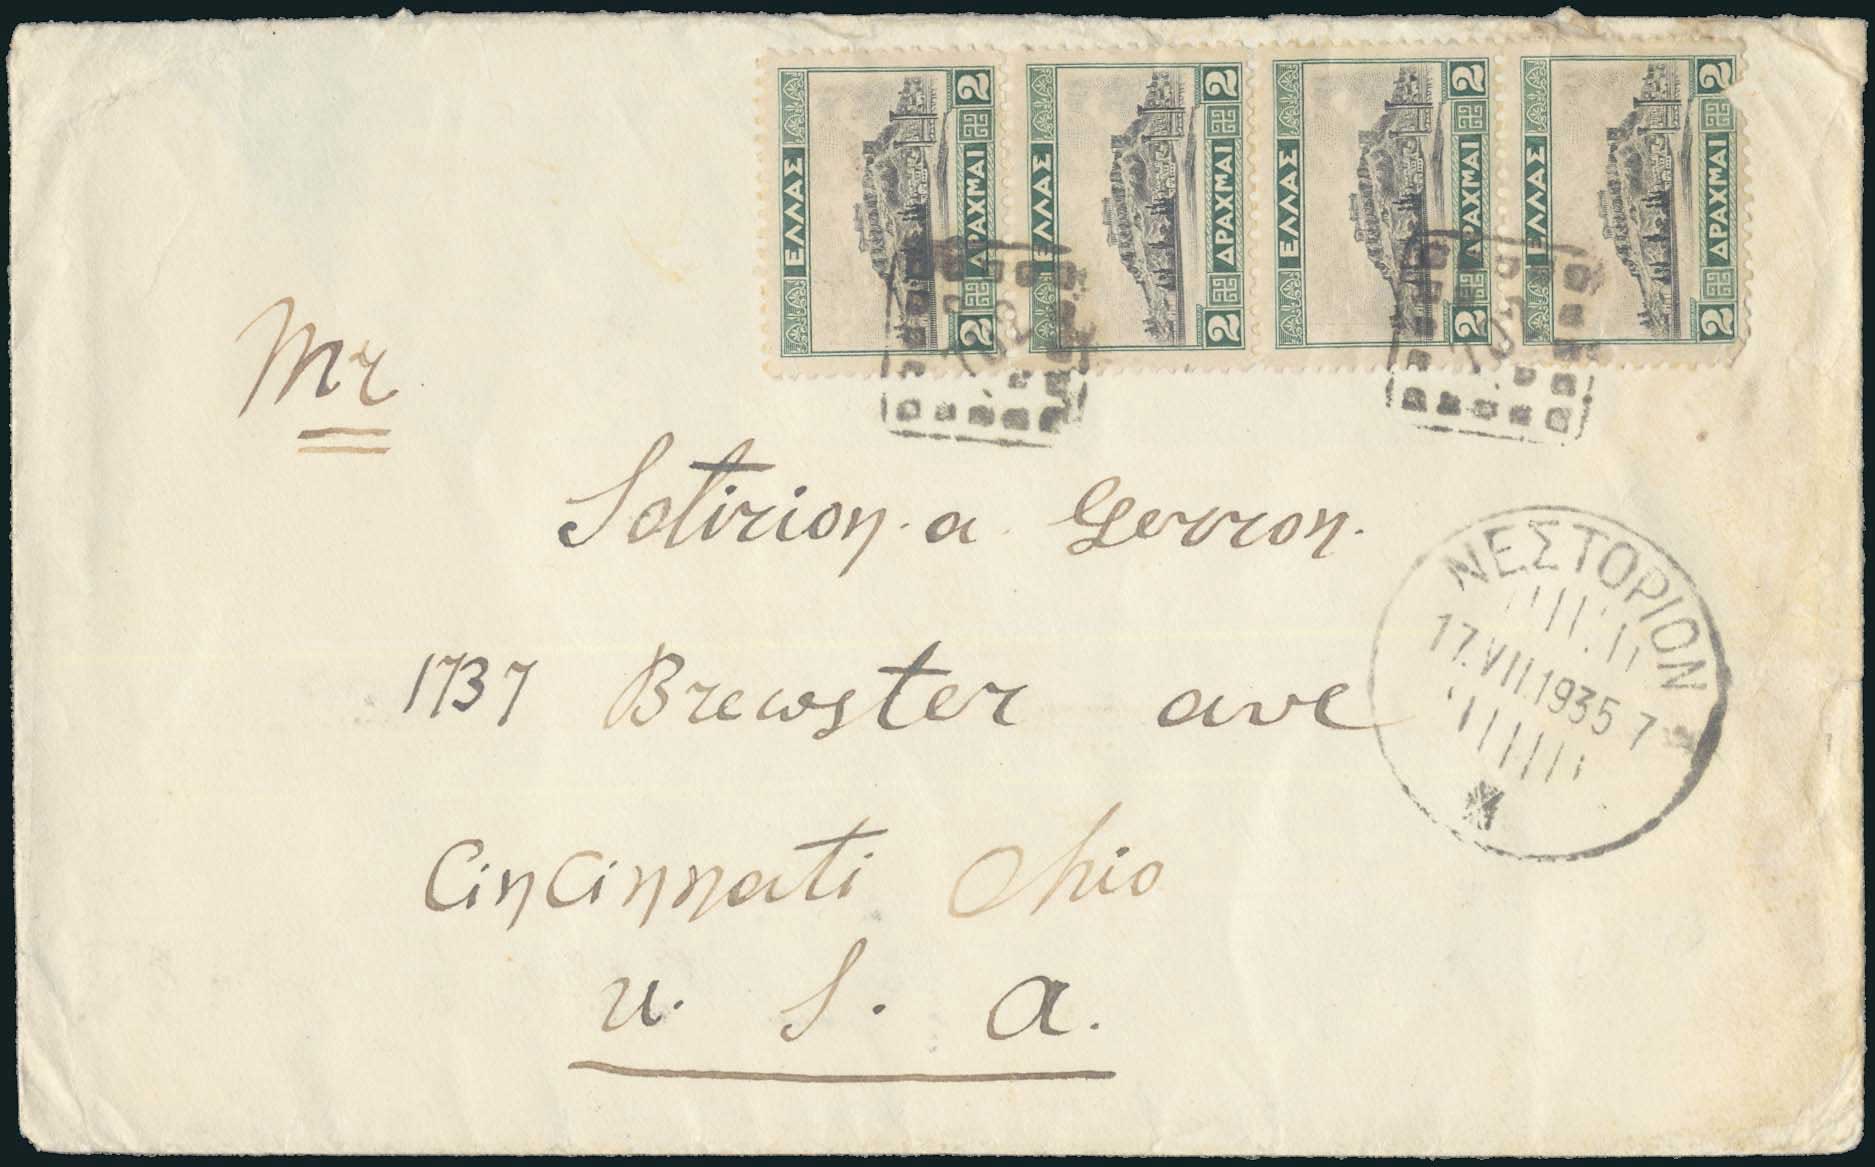 ΕΛΛΑΣ 2 ΔΡΑΧΜΑΙ 2
ΕΛΛΑΣ 2 ΔΡΑΧΜΑΙ 2
ΕΛΛΑΣ 2 ΔΡΑΧΜΑΙ 2
ΕΛΛΑΣ 2 ΔΡΑΧΜΑΙ 2
Mr
Sotirion. a Gerron.
1737 Brewster ave
Cincinnati Ohio
U. S. A.
ΝΕΣΤΟΡΙΟΝ
17.VII.1935 7